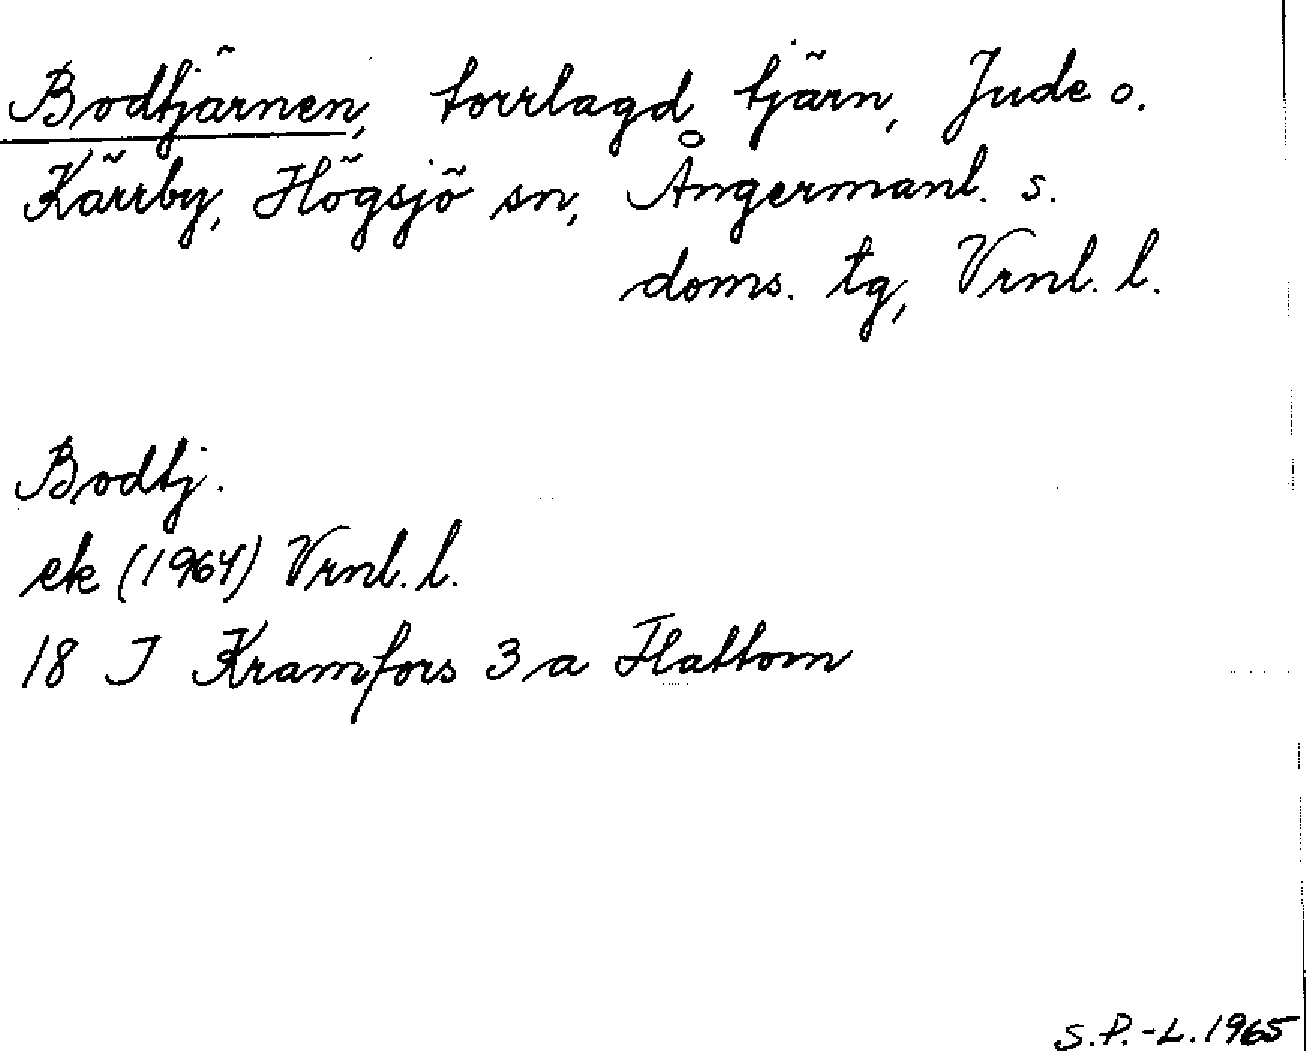 Bodtjärnen, torrlagd tjärn, Jude o.
Kärrby, Högsjö sn, Ångermanl. s.
doms. tg, Vrnl. l.
Bodtj.
ek (1964) Vrnl. l.
18 I Kramfors 3 a Flattom
S.P.-L. 1965